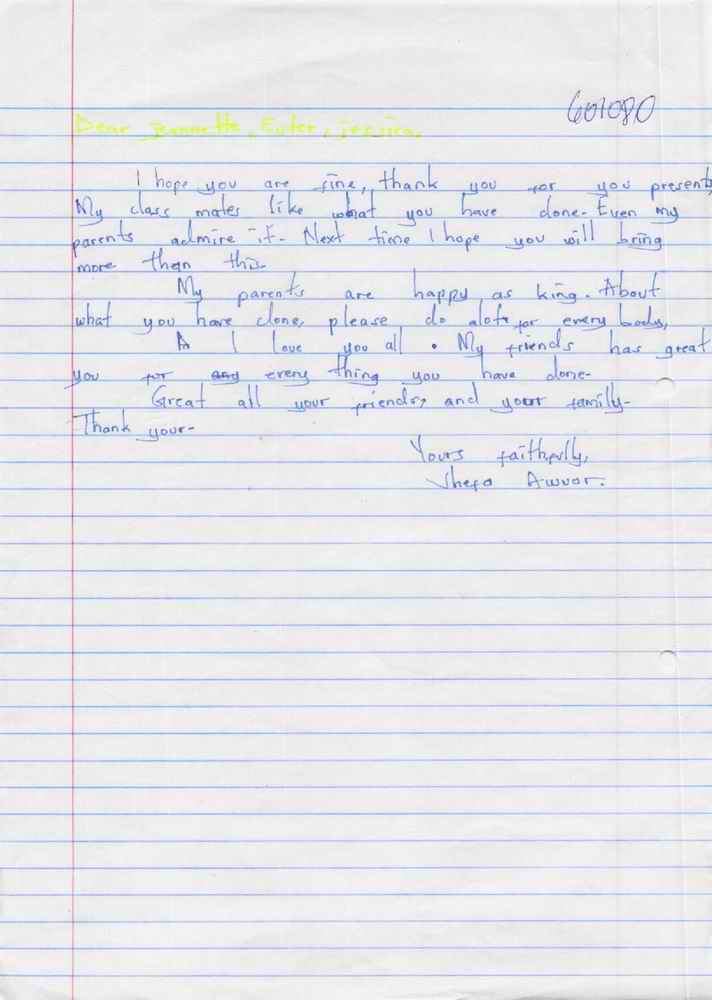 601080
Dear Jeannette, Ester, jessica,
I hope you are fine, thank you for you presents
My class mates like what you have done. Even my
parents admire it. Next time I hope you will bring
more than this.
My parents are happy as king. About
what you have done, please do alots for every body,
A I love you all. My friends has great
you for every thing you have done.
Great all your friends, and your family.
Thank your.
Yours faithfully,
Awuor.